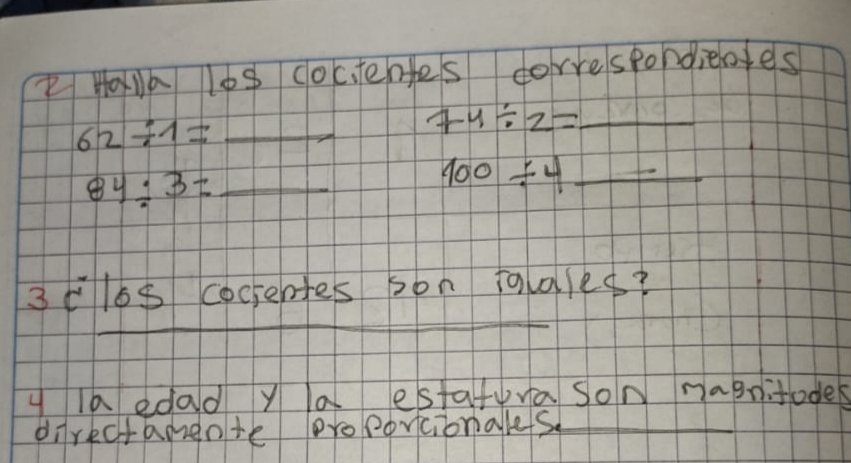 2 Halla los cocientes correspondientes
62 ÷ 1 = ______ 74 ÷ 2 = ______
84 ÷ 3 = ______ 100 ÷ 4 ______
3 ¿los cocientes son iguales?
______
4 la edad y la estatura son magnitodes
directamente proporcionales. ______